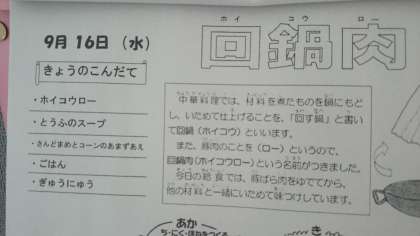 9月16日（水）
きょうのこんだて
・ホイコウロー
・とうふのスープ
・さんどまめとコーンのあまずあえ
・ごはん
・ぎゅうにゅう
ホイ コウ ロー
回鍋肉
中華料理では、材料を煮たものを鍋にもど
し、いためて仕上げることを、「回す鍋」と書い
て回鍋（ホイコウ）といいます。
また、豚肉のことを（ロー）というので、
回鍋肉（ホイコウロー）という名前がつきました。
今日の給食では、豚ばら肉をゆでてから、
他の材料と一緒にいためて味つけしています。
あか
き